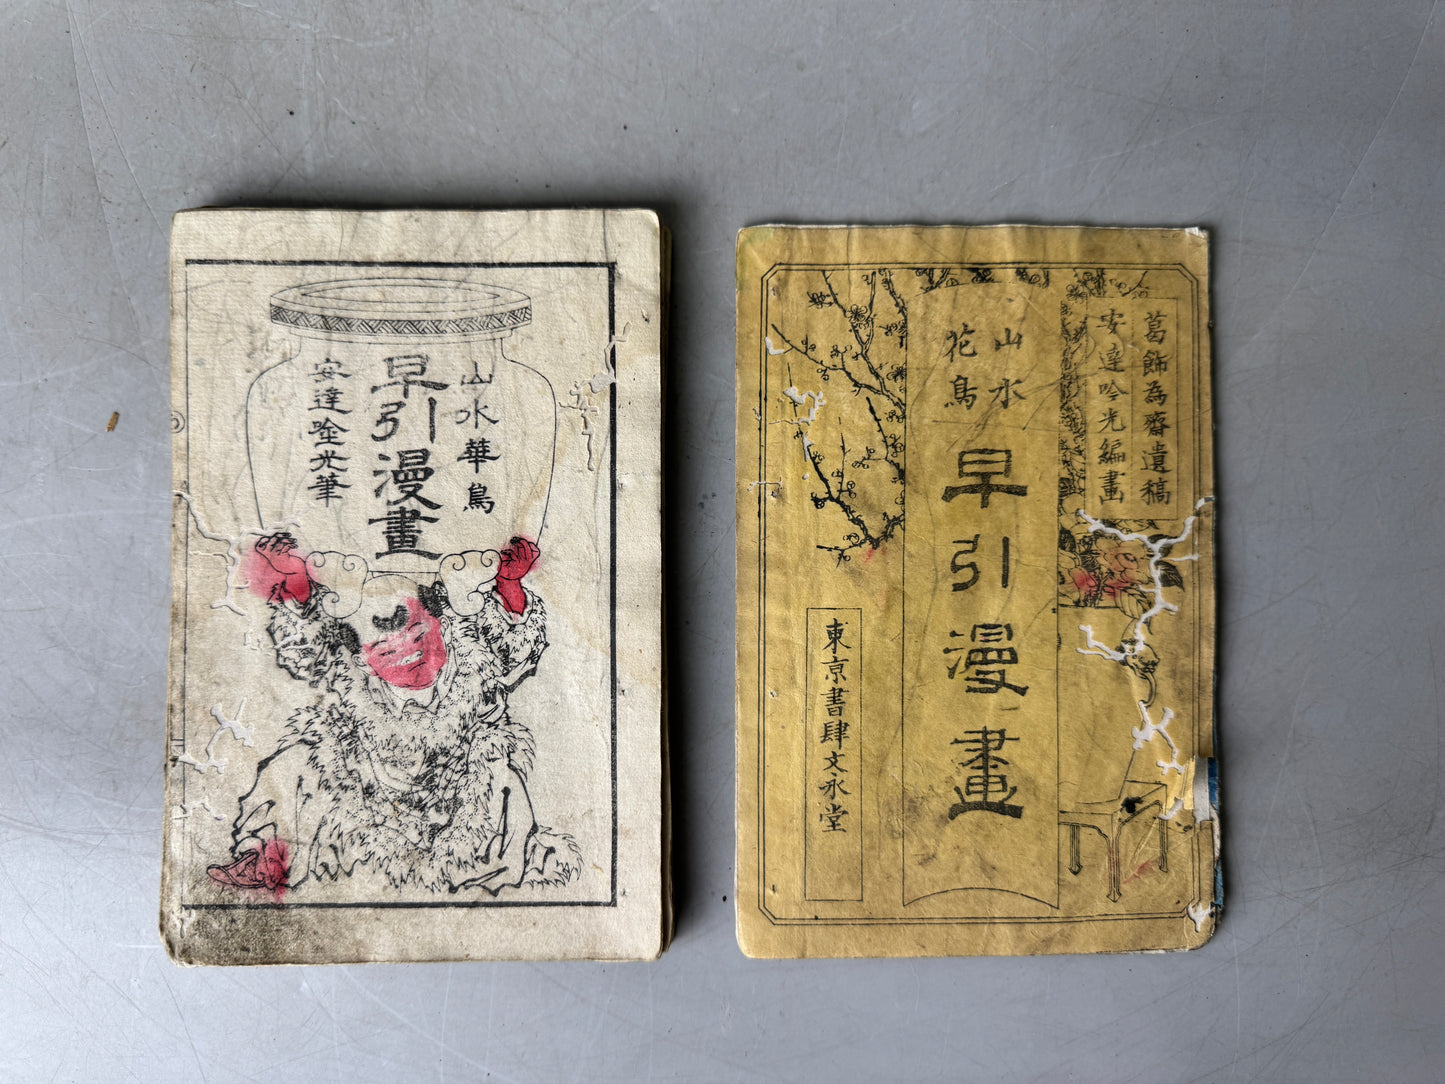 山水華鳥
早引漫畫
安達唫光筆
葛飾為齋遺稿
安達吟光編畫
山水
花鳥
早引漫畫
東京書肆文永堂